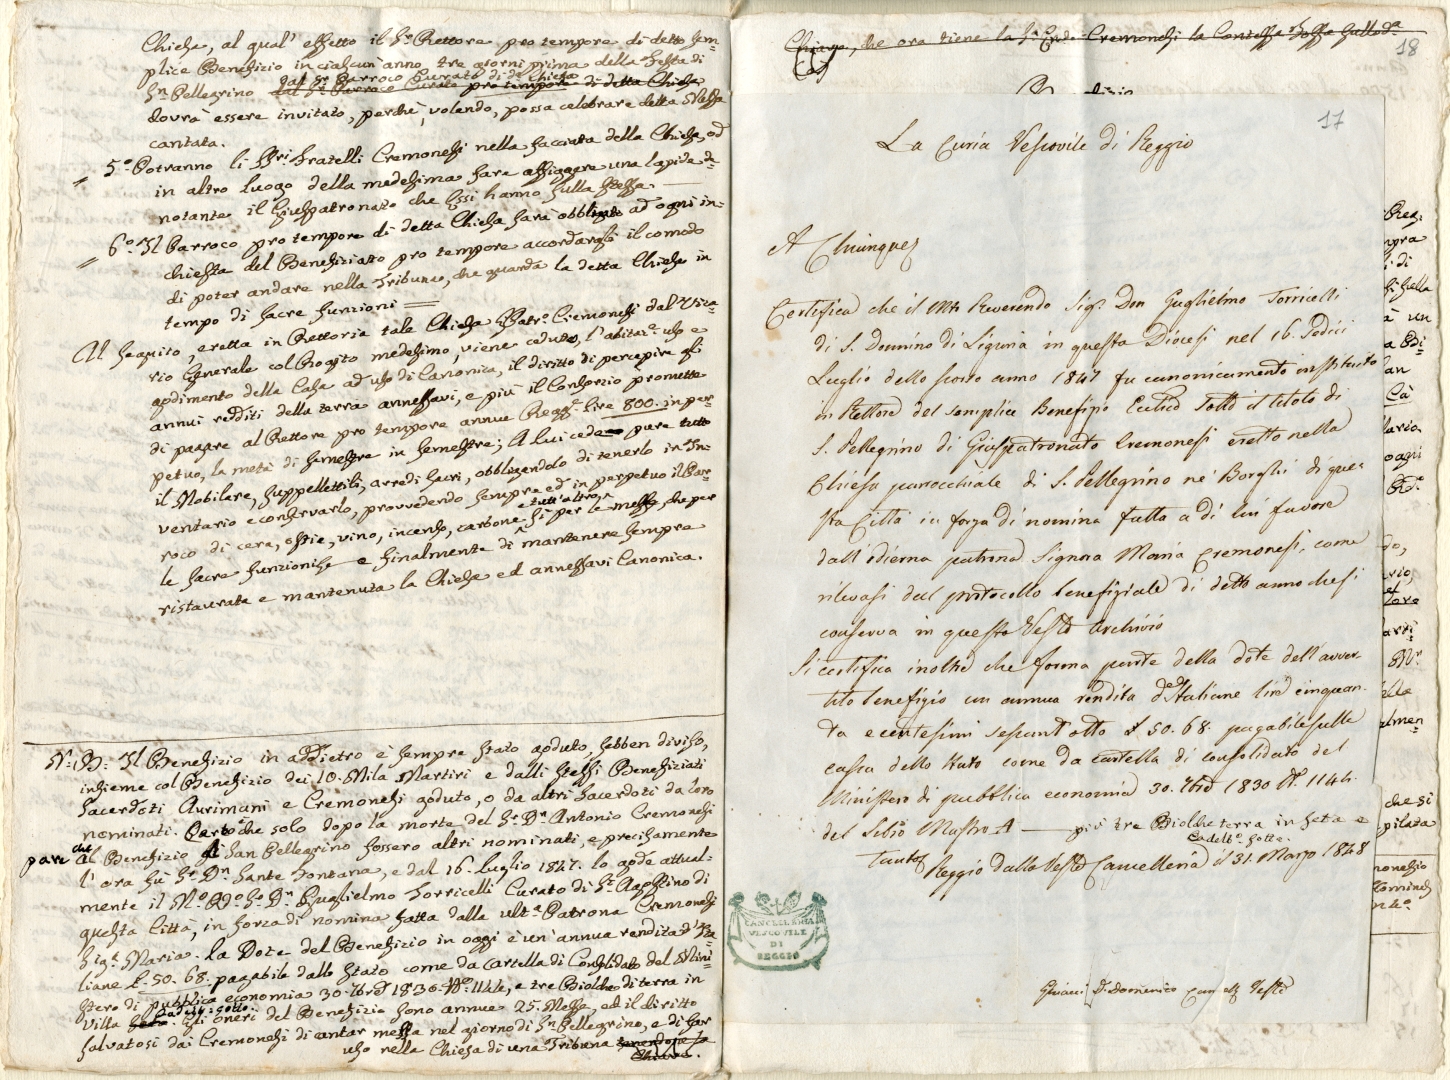 Chiesa, al qual' effetto il Sr. Rettore pro tempore di detto sem-
plice Benefizio in ciascun anno tre giorni prima della festa di
Sn. Pellegrino dal Sr. Parroco Curato di da. Chiesa
dal Sr. Parroco Curato pro tempore di detta Chiesa
dovrà essere invitato, perchè, volendo, possa celebrare detta Messa
cantata.
5° Potranno li SSri. Fratelli Cremonesi nella facciata della Chiesa, od
in altro luogo della medesima fare affiggere una lapida de-
notante il Giuspatronato che Essi hanno sulla stessa.
6° Il Parroco pro tempore di detta Chiesa sarà obbligato ad ogni in-
chiesta del Benefiziato pro tempore accordargli il comodo
di poter andare nella Tribuna, che guarda la detta Chiesa in
tempo di sacre funzioni
In seguito, eretta in Rettoria tale Chiesa Patro. Cremonesi dal Vica-
rio Generale col Rogito medesimo, viene ceduto, l'abitaz.e uso e
godimento della Casa ad uso di Canonica, il diritto di percepire gli
annui redditi della terra annessavi, e più il Consorzio promette
di pagare al Rettore pro tempore annue Regg.e Lire 800. in per-
petuo, la metà di semestre in semestre; A lui cede pure tutto
il Mobilare, suppellettili, arredi sacri, obbligandolo di tenerlo in In-
ventario e conservarlo, provvedendo sempre ed in perpetuo il Par-
roco di cera, ostie, vino, incenso, carbone e tutt'altro, sì per le messe, che per
le sacre funzioni e finalmente di mantenere sempre
ristaurata e mantenuta la Chiesa ed annessavi Canonica.
N. B. Il Benefizio in addietro è sempre stato goduto, sebben diviso,
insieme col Benefizio dei 10. Mila Martiri e dalli stessi Benefiziati
Sacerdoti Aurimani e Cremonesi goduto, o da altri Sacerdoti da loro
nominati. Certo che solo dopo la morte del Sr. Dn. Antonio Cremonesi
pare che al Benefizio di San Pellegrino fossero altri nominati, e precisamente
l'ora fu Sr. Dn. Sante Fontana, e dal 16. luglio 1847. lo gode attual-
mente il Mo. Rdo. Sr. Dn. Guglielmo Torricelli Curato di St. Agostino di
questa Città, in forza di nomina fatta dalla ulta. Patrona Cremonesi
Siga. Maria. La Dote del Benefizio in oggi è un'annua rendita d'Ita-
liane £. 50. 68. pagabile dallo Stato come da Cartella di Consolidato del Mini-
stero di pubblica economia 30. 7bre 1830 No. 1144, e tre Biolche di terra in
Villa Seta Cadelb. Sotto. Gli oneri del Benefizio sono annue 25. Messe, ed il diritto
salvatosi dai Cremonesi di cantar messa nel giorno di Sn. Pellegrino, e di far
uso nella Chiesa di una Tribuna tenendone la
Chiave.
Chiave, che ora tiene la
18
17
La Curia Vescovile di Reggio
A Chiunque
Certifica che il Mto Reverendo Sigr. Don Guglielmo Torricelli
di S. Donnino di Liguria in questa Diocesi nel 16. Sedici
Luglio dello scorso anno 1847 fu canonicamente instituito
in Rettore del semplice Benefizio Eccl.co sotto il titolo di
S. Pellegrino di Giuspatronato Cremonesi eretto nella
Chiesa parrocchiale di S. Pellegrino ne' Borghi di que-
sta Città in forza di nomina fatta a di lui favore
dall'odierna patrona Signora Maria Cremonesi, come
rilevasi dal protocollo benefiziale di detto anno che si
conserva in questo Vesc.le Archivio
Si certifica inoltre che forma parte della dote dell'avver-
tito benefizio un annua rendita d'Italiane lire cinquan-
ta e centesimi sessant'otto £ 50. 68. pagabile sulla
cassa dello Stato come da cartella di consolidato del
Ministero di pubblica economia 30. 7bre 1830 No. 1144.
del Libro Mastro A — più tre Biolche terra in Seta e
Cadelbo. Sotto.
Tanto
Reggio dalla Vesc.le Cancelleria il 31. Marzo 1848
CANCELLERIA
VESCOVILE
DI
REGGIO
D. Domenico Canc. Vesc.le